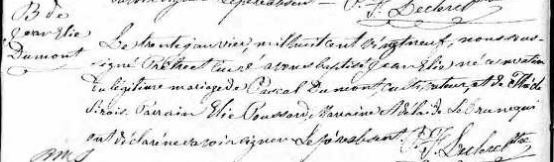 B de
Jean Elie
Dumont
Le trente janvier, mil huit cent vingt neuf, nous sous
signé Prêtre Curé avons baptisé Jean Elie né ce matin
du légitime mariage de Pascal Dumont cultivateur et de
Sirois. Parrain Elie Roussard, Marraine Adélaïde qui
ont déclaré ne savoir signer. Le père absent. Leclerc Ptre